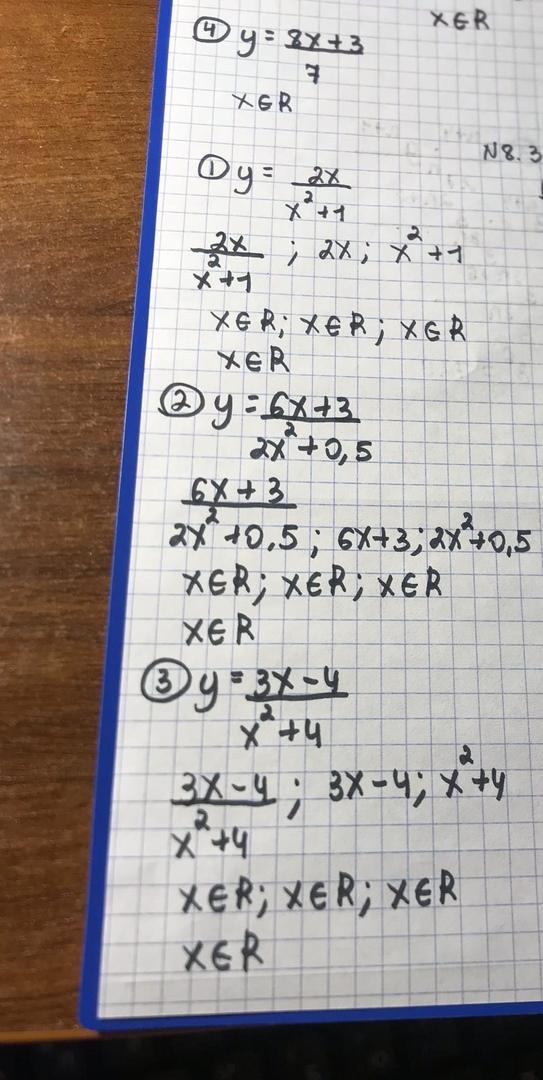 x∈R
④ y = 8x+3
7
x∈R
N8.3
① y = 2x
x²+1
2x ; 2x; x²+1
x²+1
x∈R; x∈R; x∈R
x∈R
② y = 6x+3
2x²+0,5
6x+3
2x²+0,5; 6x+3; 2x²+0,5
x∈R; x∈R; x∈R
x∈R
③ y = 3x-4
x²+4
3x-4; 3x-4; x²+4
x²+4
x∈R; x∈R; x∈R
x∈R